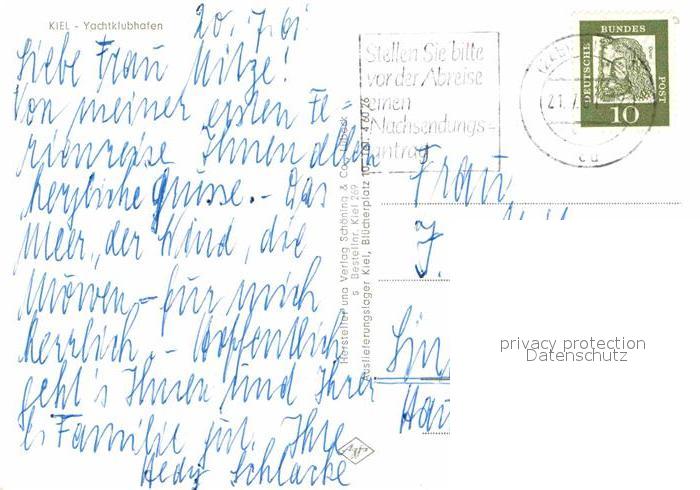 KIEL - Yachtklubhafen
20. 7. 61
Liebe Frau Mitze!
Von meiner ersten Fe-
rienreise Ihnen allen
herzliche Grüsse. - Das
Meer, der Wind, die
Möwen - für mich
herrlich. - Hoffentlich
geht's Ihnen und Ihrer
lb. Familie gut. Ihre
Hedy Schlacke
Hersteller und Verlag Schöning & Co., Lübeck
s Bestellnr. Kiel 269
Auslieferungslager Kiel, Blücherplatz 10, Tel. 4 60 26
Stellen Sie bitte
vor der Abreise
einen
Nachsendungs-
antrag
21. 7.
DEUTSCHE BUNDES POST
10
Frau
J.
Hau
privacy protection
Datenschutz
Agfa